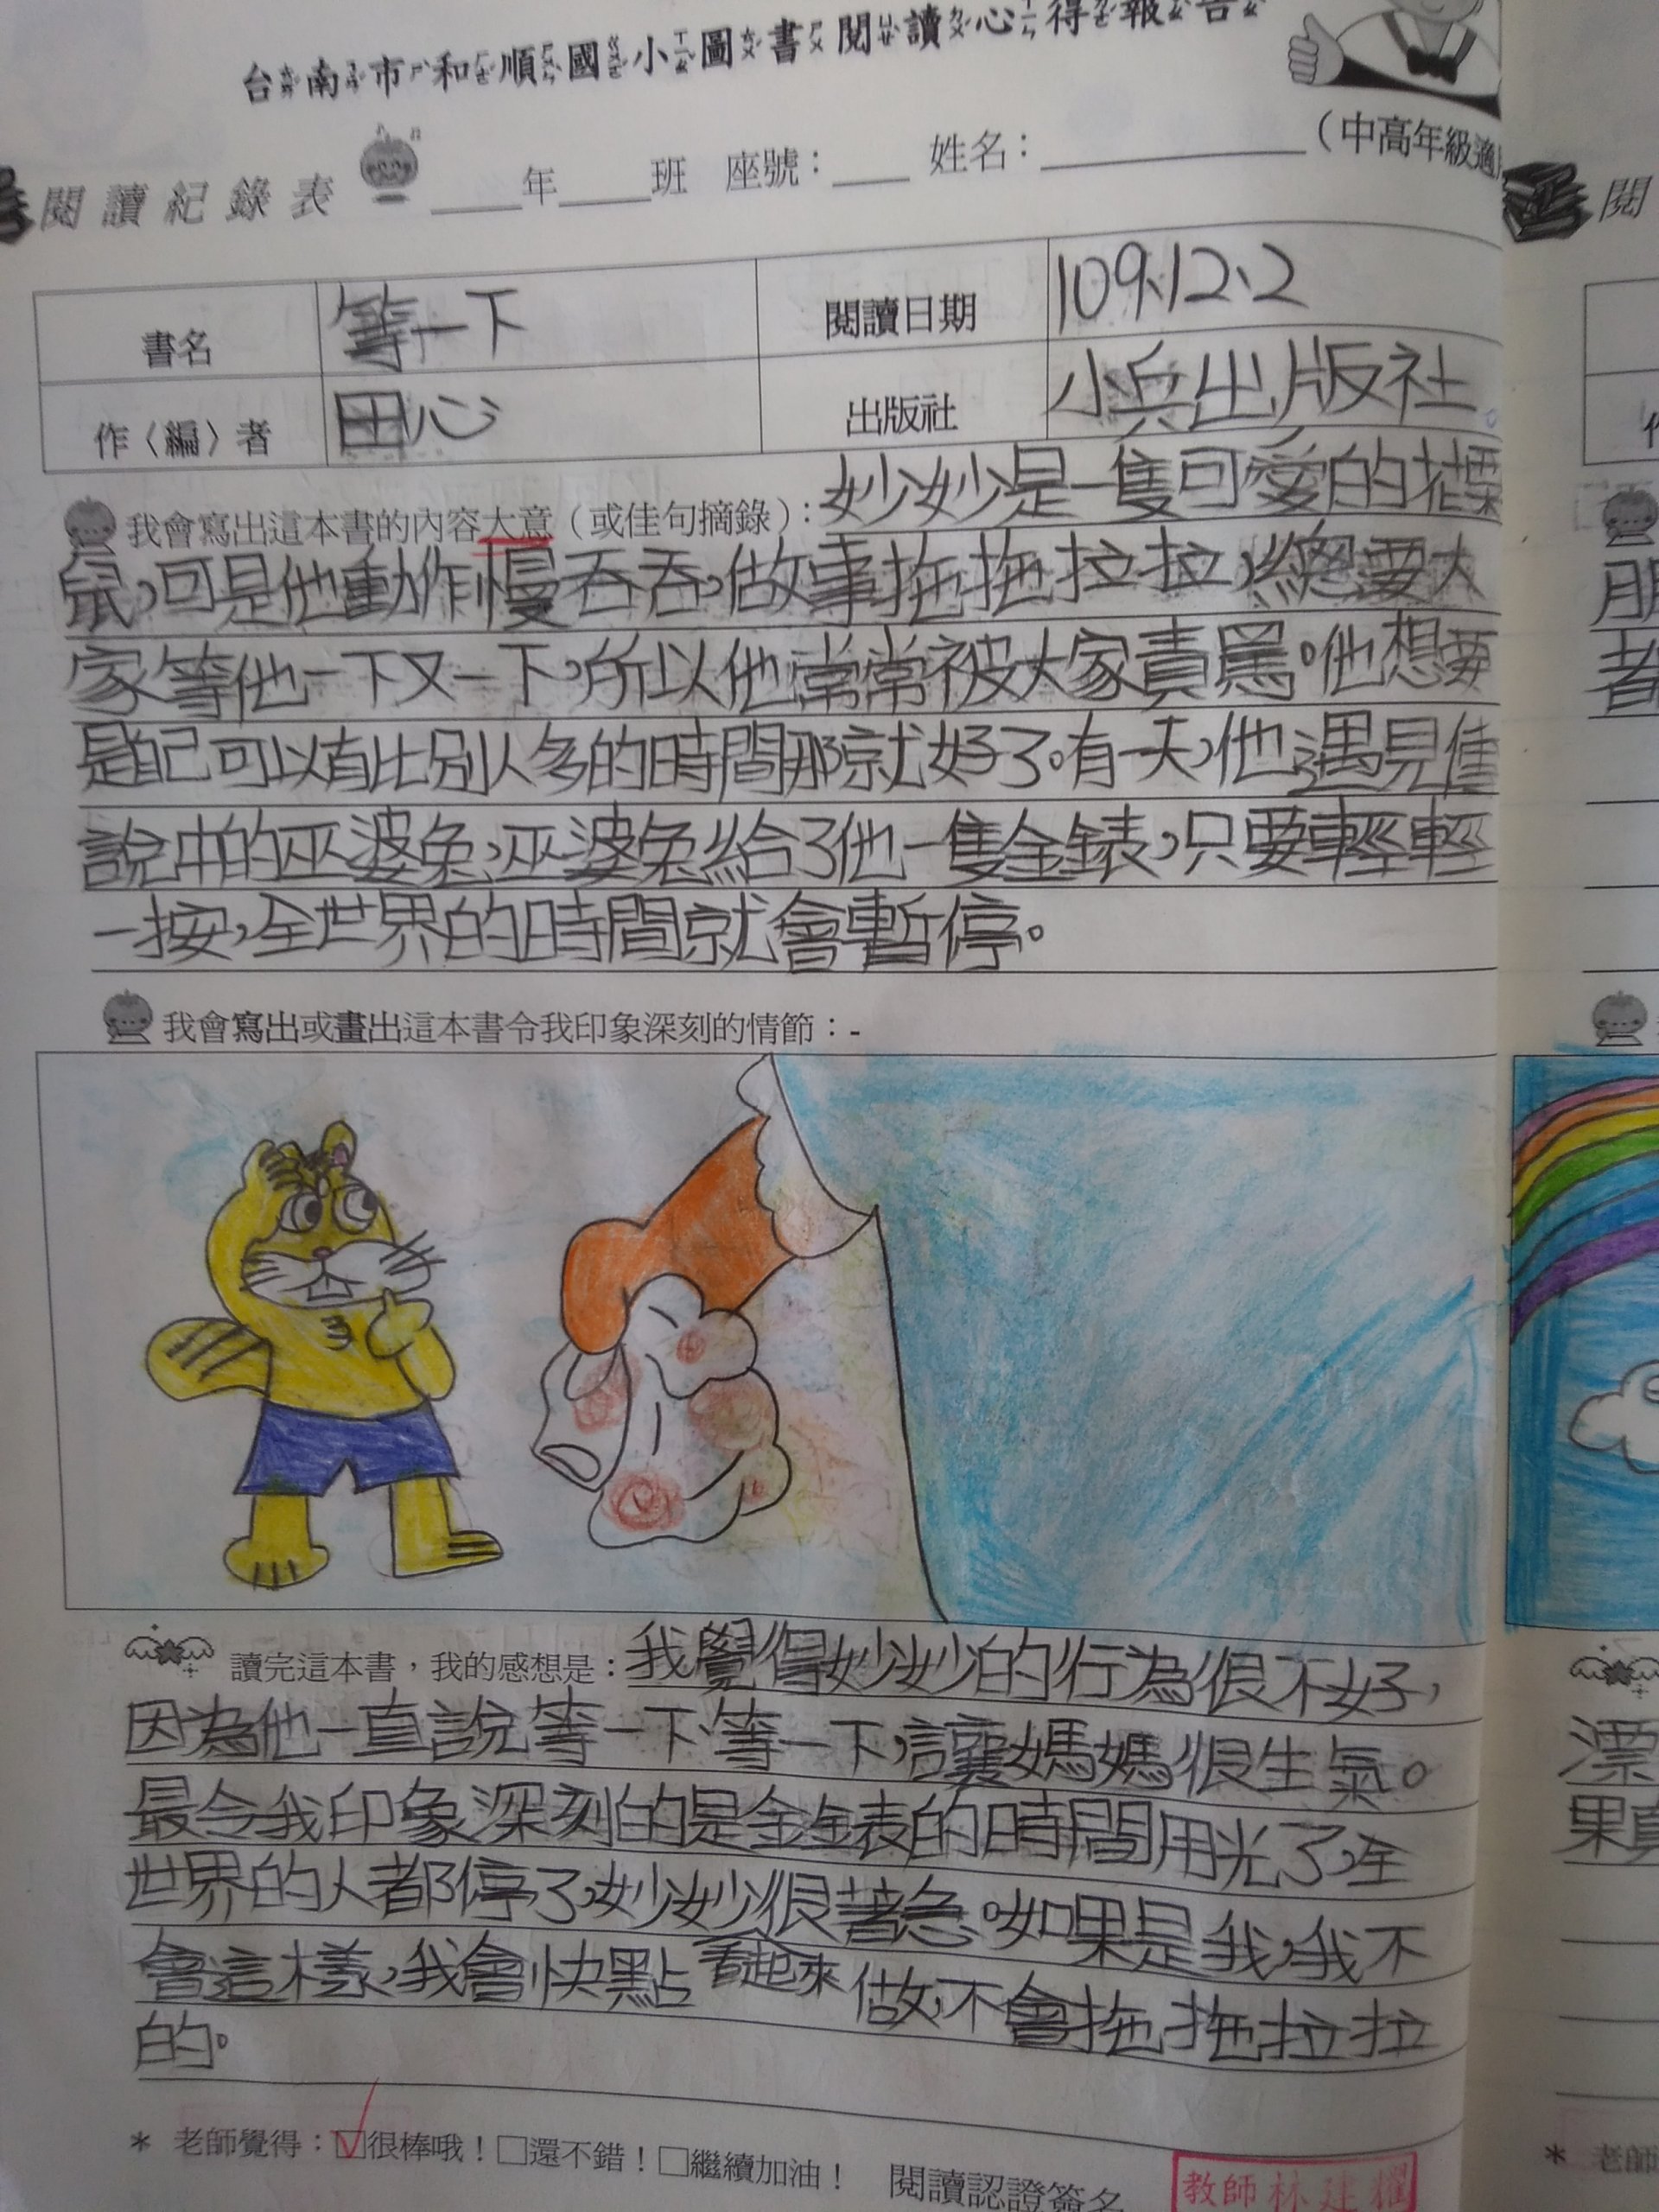 台南市和順國小圖書閱讀心得報告
閱讀紀錄表 ____年____班 座號：____ 姓名：________ （中高年級適
閱
書名 等一下 閱讀日期 109、12、2
作〈編〉者 田心 出版社 小兵出版社。
我會寫出這本書的內容大意（或佳句摘錄）：妙妙是一隻可愛的花栗
鼠，可是他動作慢吞吞，做事拖拖拉拉，總要大
家等他一下又一下，所以他常常被大家責罵。他想要
是自己可以有比別人多的時間那就好了。有一天，他遇見
說中的巫婆兔，巫婆兔給了他一隻金錶，只要輕輕
一按，全世界的時間就會暫停。
我會寫出或畫出這本書令我印象深刻的情節：-
讀完這本書，我的感想是：我覺得妙妙的行為很不好，
因為他一直說等一下、等一下，讓媽媽很生氣。
最令我印象深刻的是金錶的時間用光了，全
世界的人都停了，妙妙很著急。如果是我，我不
會這樣，我會快點看起來做，不會拖拖拉拉
的。
* 老師覺得：☑很棒哦！□還不錯！□繼續加油！ 閱讀認證簽名
教師 林建
漂
* 老師